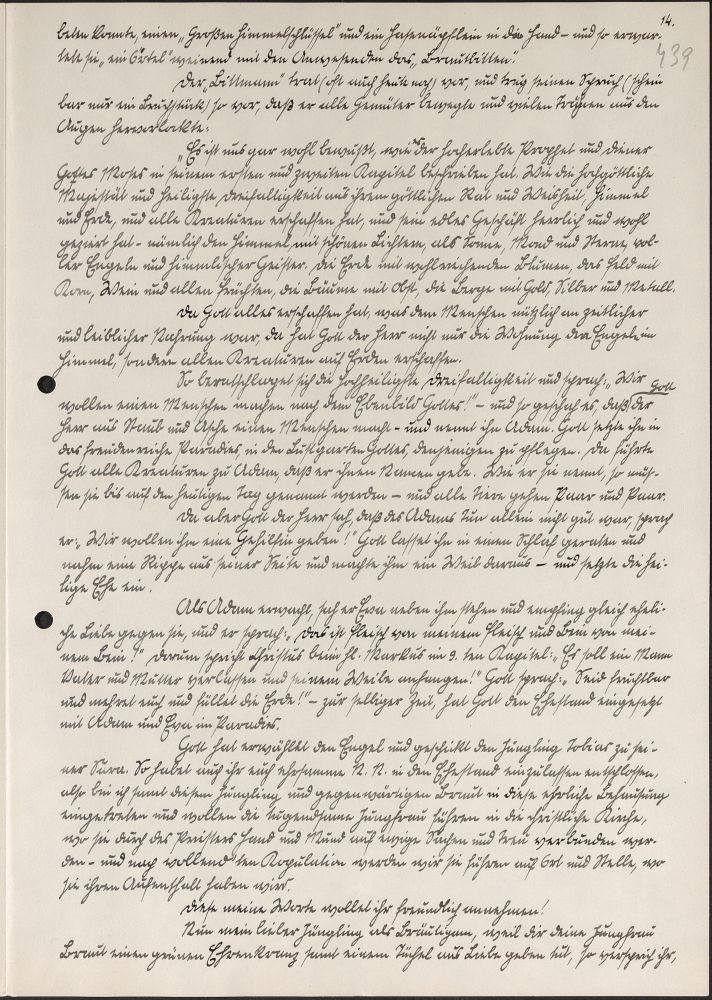 14.
439
beten konnte, einen „Großen Himmelschlüssel" und ein Hasenäpflein in die Hand – und so erwar-
tete sie „ein Örtel" weinend mit den Anwesenden das „Brautbitten".
Der „Bittmann" trat (oft auch heute noch) vor, und trug seinen Spruch (schein
bar nur ein Bruchstück) so vor, daß er alle Gemüter bewegte und vielen Tränen aus den
Augen hervorlockte:
„Es ist uns gar wohl bewußt, wie der hocherlebte Prophet und Diener
Gottes Moses in seinem ersten und zweiten Kapitel beschrieben hat. Wie die hochgöttliche
Majestät und heiligste Dreifaltigkeit aus ihrem göttlichen Rat und Weisheit, Himmel
und Erde, und alle Kreaturen erschaffen hat, und sein edles Geschäft herrlich und wohl
geziert hat – nämlich den Himmel mit schönen Lichtern, als Sonne, Mond und Sterne, vol-
ler Engeln und himmlischer Geister. Die Erde mit wohlriechenden Blumen, das Feld mit
Korn, Wein und allen Früchten, die Bäume mit Obst, die Berge mit Gold, Silber und Metall.
Da Gott alles erschaffen hat, was dem Menschen nützlich an zeitlicher
und leiblicher Nahrung war, da hat Gott der Herr nicht nur die Wohnung der Engel im
Himmel, sondern allen Kreaturen auf Erden erschaffen.
So beratschlaget sich die hochheiligste Dreifaltigkeit und sprach: „Wir
wollen einen Menschen machen nach dem Ebenbild Gottes!" – und so geschah es, daß Gott der
Herr aus Staub und Asche einen Menschen macht – und nennt ihn Adam. Gott setzte ihn in
das freudenreiche Paradies, in den Lustgarten Gottes, denjenigen zu pflegen. Da führte
Gott alle Kreaturen zu Adam, daß er ihnen Namen gebe. Wie er sie nennt, so müs-
sen sie bis auf den heutigen Tag genannt werden – und alle Tiere gehen Paar und Paar.
Da aber Gott der Herr sah, daß des Adams Tun allein nicht gut war, sprach
er: „Wir wollen ihm eine Gehilfin geben!" Gott lasset ihn in einen Schlaf geraten und
nahm eine Rippe aus seiner Seite und machte ihm ein Weib daraus – und setzte die hei-
lige Ehe ein.
Als Adam erwacht, sah er Eva neben ihm stehen und empfing gleich eheli-
che Liebe gegen sie, und er sprach: „Das ist Fleisch von meinem Fleisch und Bein von mei-
nem Bein!" Darum spricht Christus beim hl. Markus im 9. ten Kapitel: „Es soll ein Mann
Vater und Mutter verlassen und seinem Weibe anhangen!" Gott sprach: „Seid fruchtbar
und mehret euch und füllet die Erde!" – zur selbiger Zeit, hat Gott den Ehestand eingesetzt
mit Adam und Eva im Paradies.
Gott hat erwählt den Engel und geschickt den Jüngling Tobias zu sei-
ner Sara. So habet auch ihr euch ehrsamme N. N. in den Ehestand einzulassen entschlossen,
also bin ich samt diesem Jüngling und gegenwärtigen Braut in diese ehrliche Behausung
eingetreten und wollen die tugendsame Jungfrau führen in die christliche Kirche,
wo sie durch des Priesters Hand und Mund auf ewige Sachen und treu verbunden wer-
den – und nach vollend'ten Kopulation werden wir sie führen auf Ort und Stelle, wo
sie ihren Aufenthalt haben wird.
Diese meine Worte wollet ihr freundlich annehmen!
Nun mein lieber Jüngling als Bräutigam, weil dir deine Jungfrau
Braut einen grünen Ehrenkranz samt einem Tüchel aus Liebe geben tut, so versprich ihr,